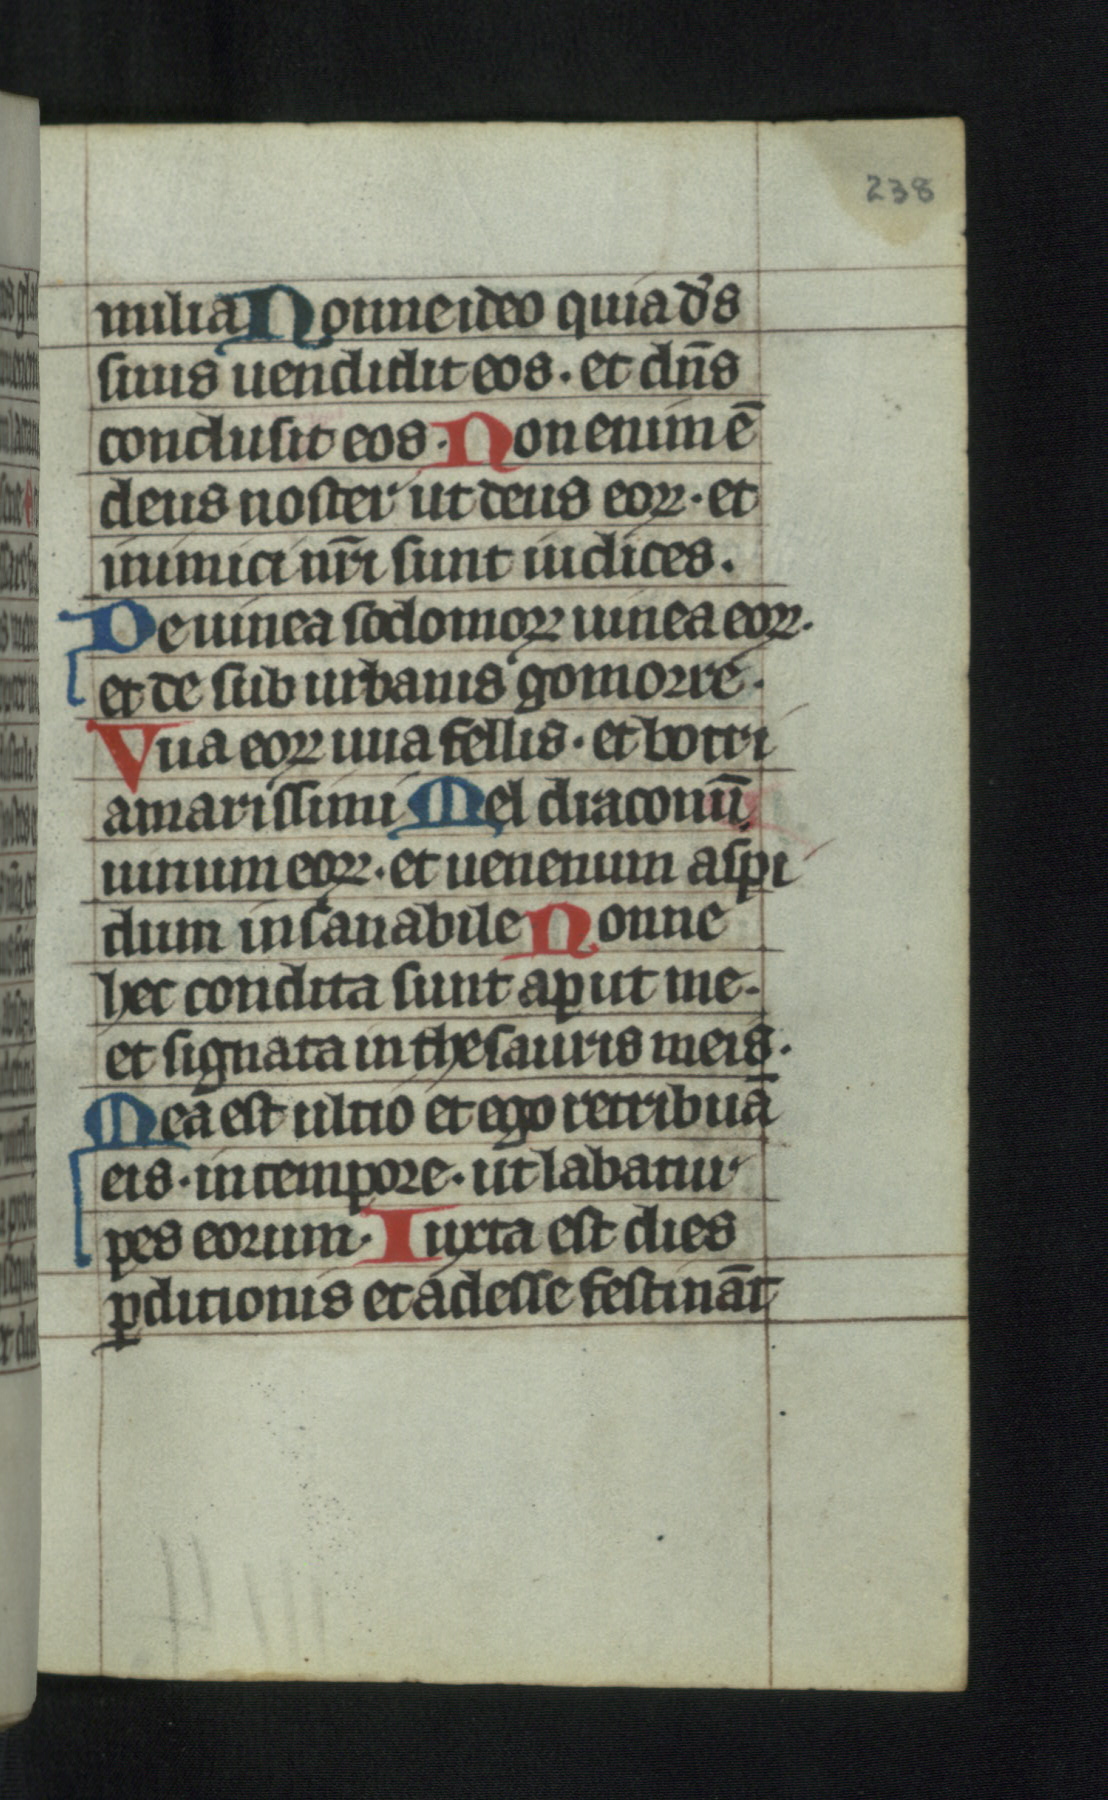 238
milia Nonne ideo quia d̄s
suus uendidit eos. et dn̄s
conclusit eos. Non enim ē
deus noster ut deus eoꝝ. et
inimici nr̄i sunt iudices.
De uinea sodomoꝝ uinea eoꝝ.
et de sub urbanis gomorre.
Vua eoꝝ uua fellis. et botri
amarissimi Mel draconū
uinum eoꝝ. et uenenum aspi
dum insanabile Nonne
hec condita sunt aput me.
et signata in thesauris meis.
Mea est ultio et ego retribuā
eis. in tempore. ut labatur
pes eorum. Iuxta est dies
ꝑditionis et adesse festināt